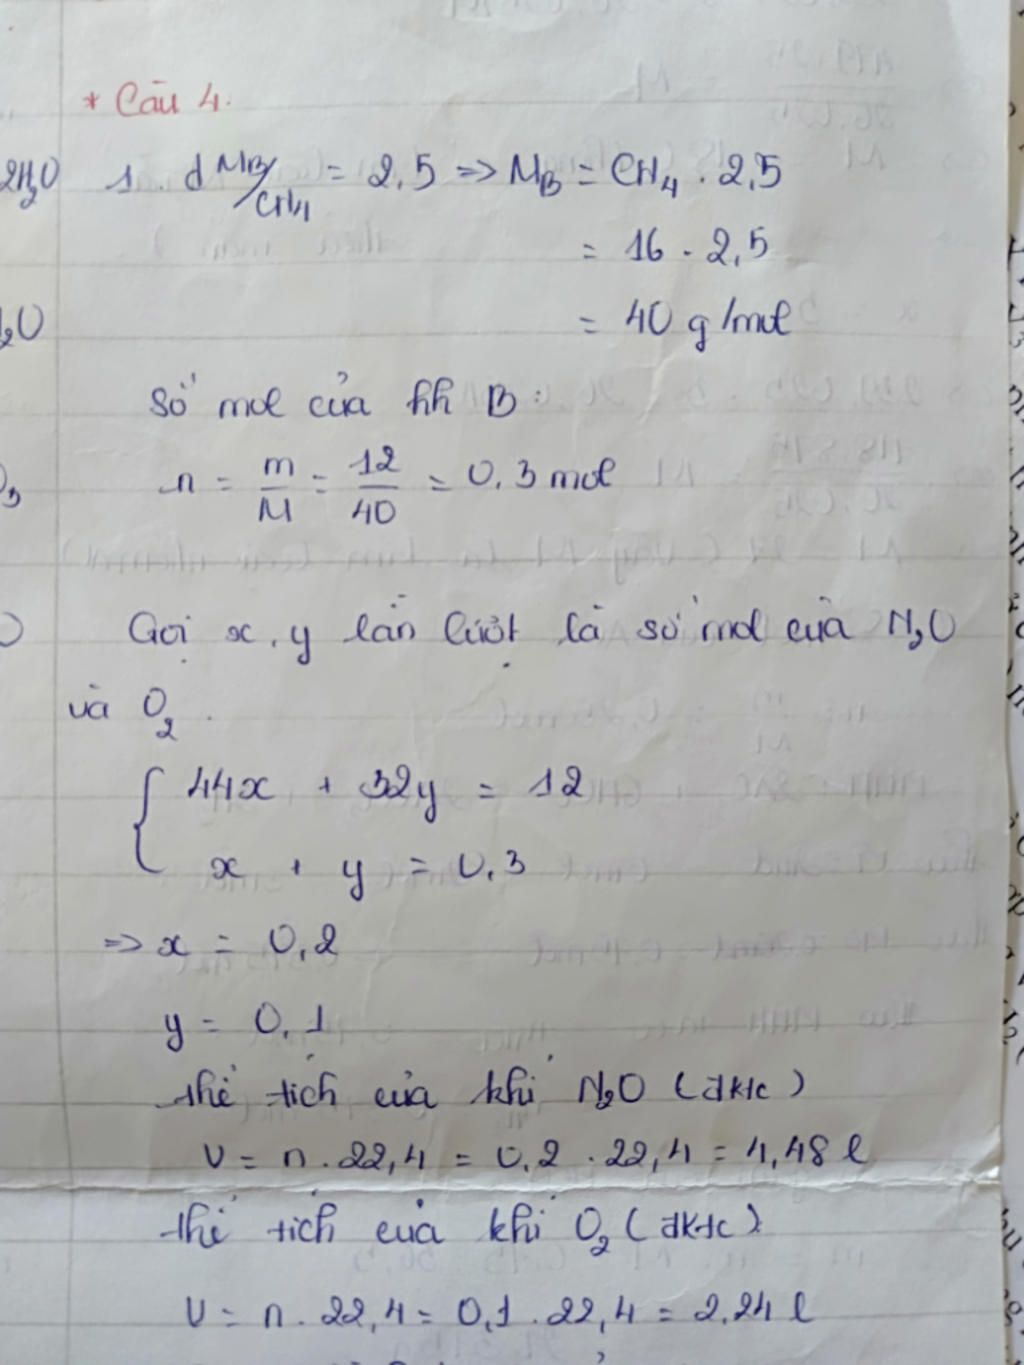 * Câu 4.
2H₂O 1. d MB/CH₄ = 2,5 => MB = CH₄ . 2,5
= 16 . 2,5
= 40 g/mol
Số mol của hh B:
n = m/M = 12/40 = 0,3 mol
Gọi x, y lần lượt là số mol của N₂O
và O₂.
{ 44x + 32y = 12
x + y = 0,3
=> x = 0,2
y = 0,1
thể tích của khí N₂O (đktc)
V = n . 22,4 = 0,2 . 22,4 = 4,48 l
thể tích của khí O₂ (đktc)
V = n . 22,4 = 0,1 . 22,4 = 2,24 l